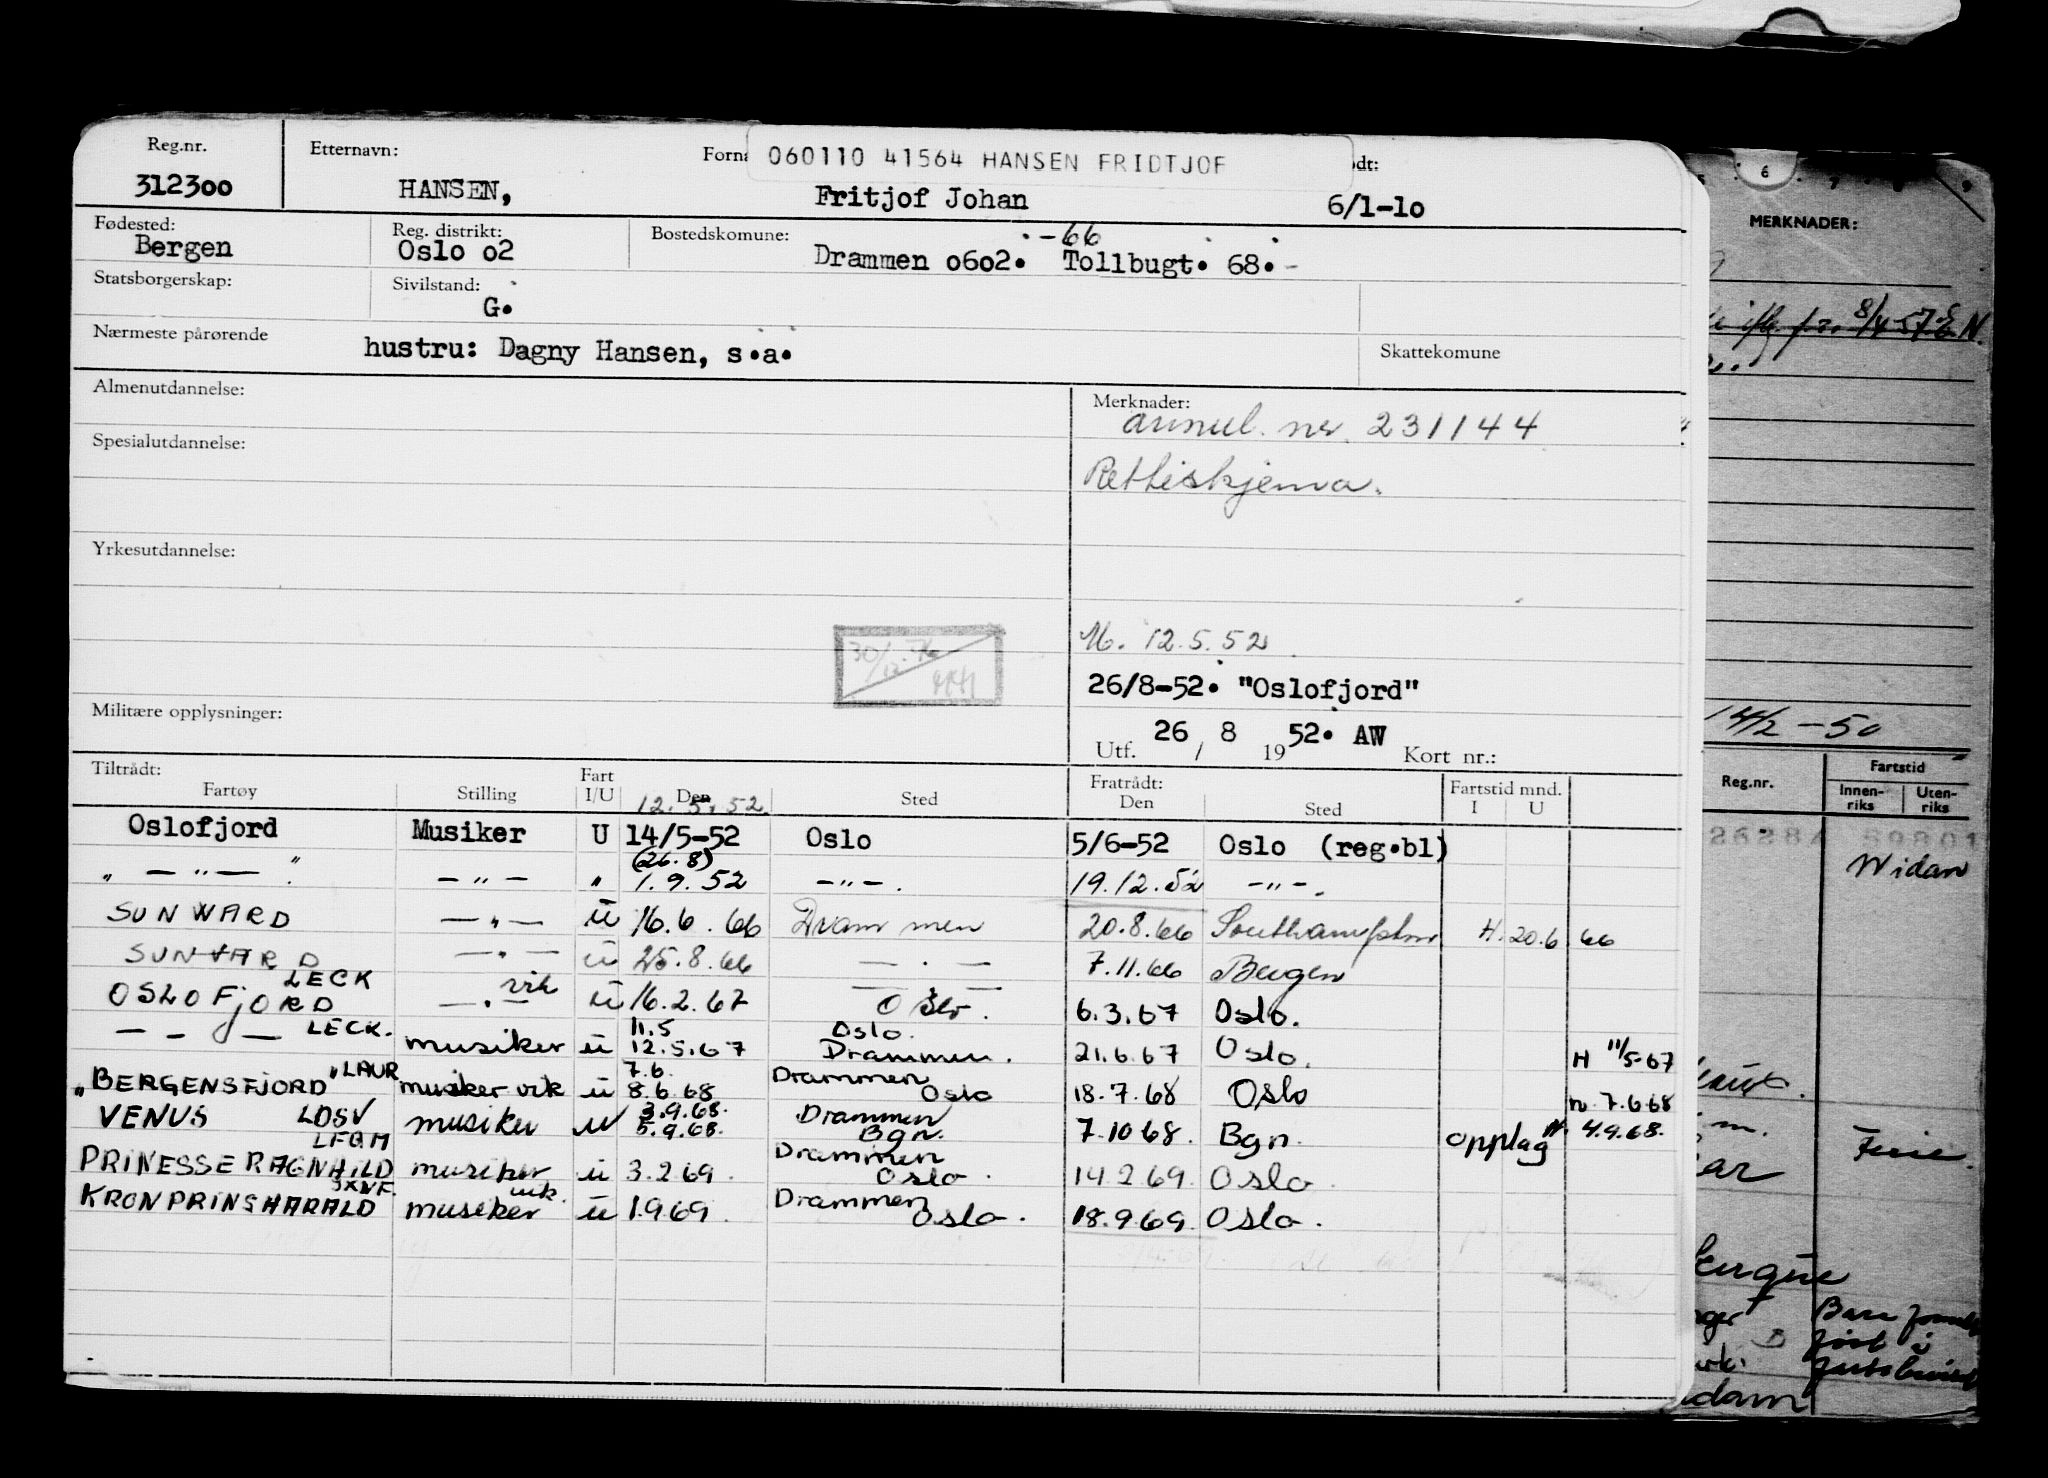 Reg.nr. Etternavn: Forna 060110 41564 HANSEN FRIDTJOF dt:
312300 HANSEN, Fritjof Johan 6/1-10
Fødested: Reg. distrikt: Bostedskomune: -66
Bergen Oslo o2 Drammen o6o2. Tollbugt. 68.-
Statsborgerskap: Sivilstand:
G.
Nærmeste pårørende hustru: Dagny Hansen, s.a. Skattekomune
Almenutdannelse: Merknader:
annul. nr. 231144
Spesialutdannelse:
Rettiskjema.
Yrkesutdannelse:
30/12-76
M. 12.5.52
26/8-52. "Oslofjord"
Militære opplysninger:
Utf. 26 / 8 1952. AW Kort nr.:
Tiltrådt: Fart Fratrådt: Fartstid mnd.
Fartøy Stilling I/U Den Sted Den Sted I U
12.5.52
Oslofjord Musiker U 14/5-52 Oslo 5/6-52 Oslo (reg.bl)
(26.8)
" — " — " — " — " 1.9.52 — " — . 19.12.52 — " — .
SUNWARD — " — U 16.6.66 Drammen 20.8.66 Southampton H. 20.6 66
SUNVARD — " — U 25.8.66 — " — 7.11.66 Bergen
LECK vik
OSLOFJORD — " — U 16.2.67 Oslo. 6.3.67 Oslo.
LECK. 11.5 Oslo.
— — — musiker U 12.5.67 Drammen. 21.6.67 Oslo. H 11/5-67
"LAUR 7.6. Drammen
"BERGENSFJORD musiker vik U 8.6.68 Oslo 18.7.68 Oslo n. 7.6.68
3.9.68. Drammen
VENUS LDSV musiker U 5.9.68. Bgn. 7.10.68. Bgn. opplag H. 4.9.68.
LFQM Drammen
PRINSESSE RAGNHILD musiker U 3.2.69. Oslo. 14.2.69. Oslo.
JXWF. vik. Drammen
KRONPRINSHARALD musiker U 1.9.69. Oslo. 18.9.69. Oslo.
6
MERKNADER:
14/2-50
Reg.nr. Fartstid
Innen-riks Uten-riks
Widan
Ferie.